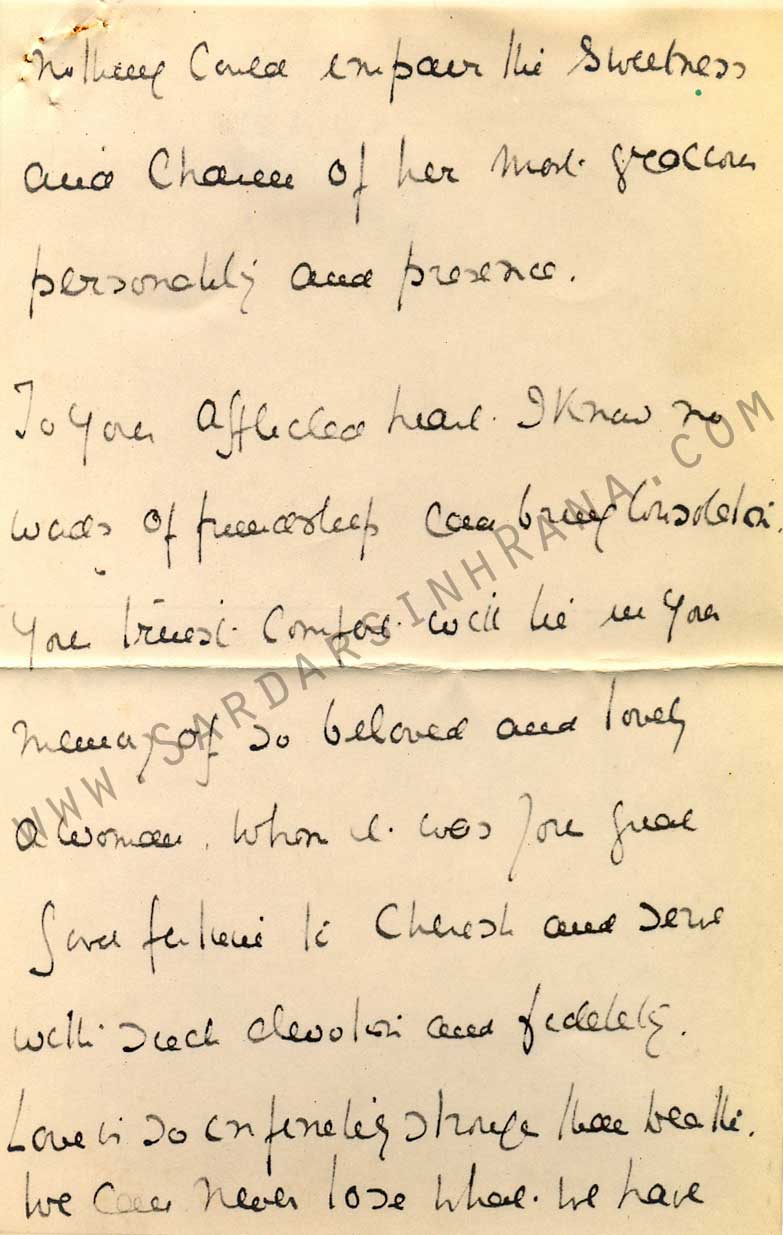 Nothing could impair the sweetness
and charm of her most gracious
personality and presence.
To your afflicted heart. I know no
words of friendship can bring consolation.
Your truest comfort will lie in your
memory of so beloved and lovely
a woman, whom it was your great
good fortune to cherish and serve
with such devotion and fidelity.
Love is so infinitely stronger than death.
We can never lose what we have
WWW.SARDARSINHRANA.COM